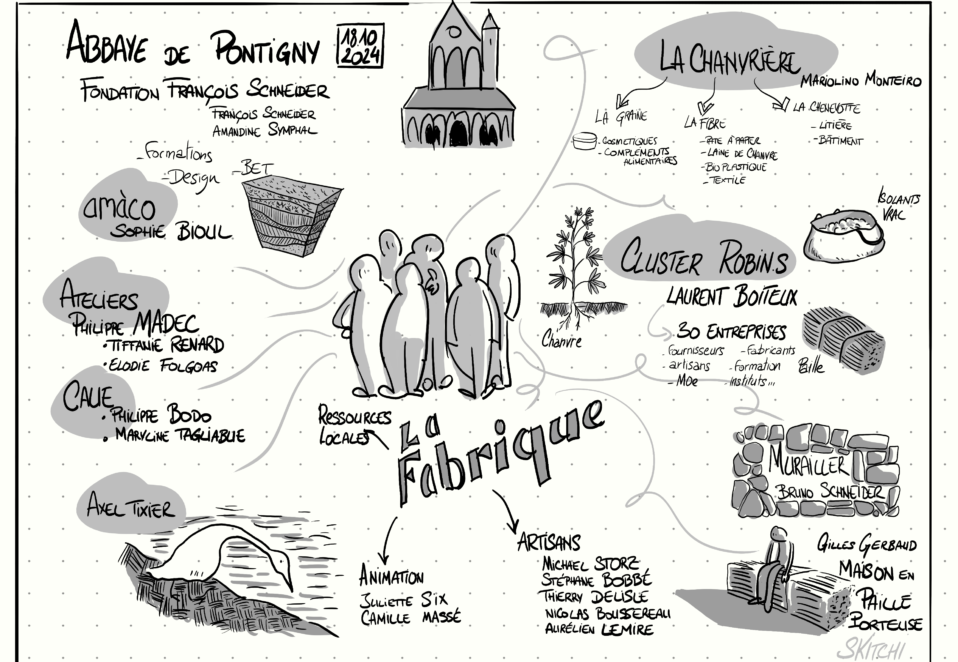 ABBAYE DE PONTIGNY
18.10
2024
FONDATION FRANÇOIS SCHNEIDER
FRANÇOIS SCHNEIDER
AMANDINE SYMPHAL
- Formations
- Design
- BET
amàco
SOPHIE BIOUL
ATELIERS
PHILIPPE MADEC
• TIFFANIE RENARD
• ELODIE FOLGOAS
CAUE
• PHILIPPE BODO
• MARYLINE TAGLIABUE
AXEL TIXIER
RESSOURCES
LOCALES
La
Fabrique
ANIMATION
JULIETTE SIX
CAMILLE MASSÉ
ARTISANS
MICHAEL STORZ
STÉPHANE BOBBÉ
THIERRY DELISLE
NICOLAS BOUSSEREAU
AURÉLIEN LEMIRE
LA CHANVRIÈRE
MARIOLINO MONTEIRO
LA GRAINE
- COSMETIQUES
- COMPLEMENTS
ALIMENTAIRES
LA FIBRE
- PATE À PAPIER
- LAINE DE CHANVRE
- BIO PLASTIQUE
- TEXTILE
LA CHENEVOTTE
- LITIÈRE
- BÂTIMENT
Chanvre
CLUSTER ROBIN.S
LAURENT BOITEUX
30 ENTREPRISES
- Fournisseurs
- artisans
- Moe
- Fabricants
- Formation
- Instituts...
ISOLANTS
VRAC
Paille
MURAILLER
BRUNO SCHNEIDER
GILLES GERBAUD
MAISON EN
PAILLE
PORTEUSE
SKITCHI